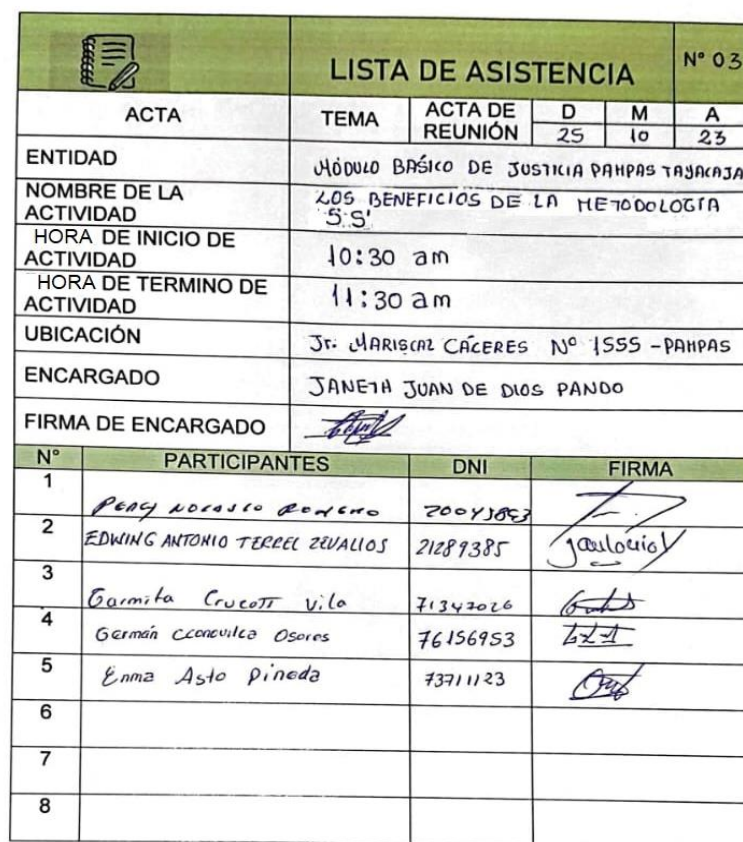 LISTA DE ASISTENCIA
N° 03
ACTA
TEMA
ACTA DE REUNIÓN
D M A
25 10 23
ENTIDAD
MÓDULO BASICO DE JUSTICIA PAMPAS TAYACAJA
NOMBRE DE LA ACTIVIDAD
LOS BENEFICIOS DE LA METODOLOGÍA
5 S'
HORA DE INICIO DE ACTIVIDAD
10:30 am
HORA DE TERMINO DE ACTIVIDAD
11:30 am
UBICACIÓN
Jr. MARISCAL CÁCERES N° 1555 - PAMPAS
ENCARGADO
JANETH JUAN DE DIOS PANDO
FIRMA DE ENCARGADO
N° PARTICIPANTES DNI FIRMA
1 Percy Nolasco Romero
2 EDWING ANTONIO TERREL ZEVALLOS 21289385
3 Vila 71347026
4 Germán Ccanquilca Osores 76156953
5 Enma Asto Pineda 73711123
6
7
8